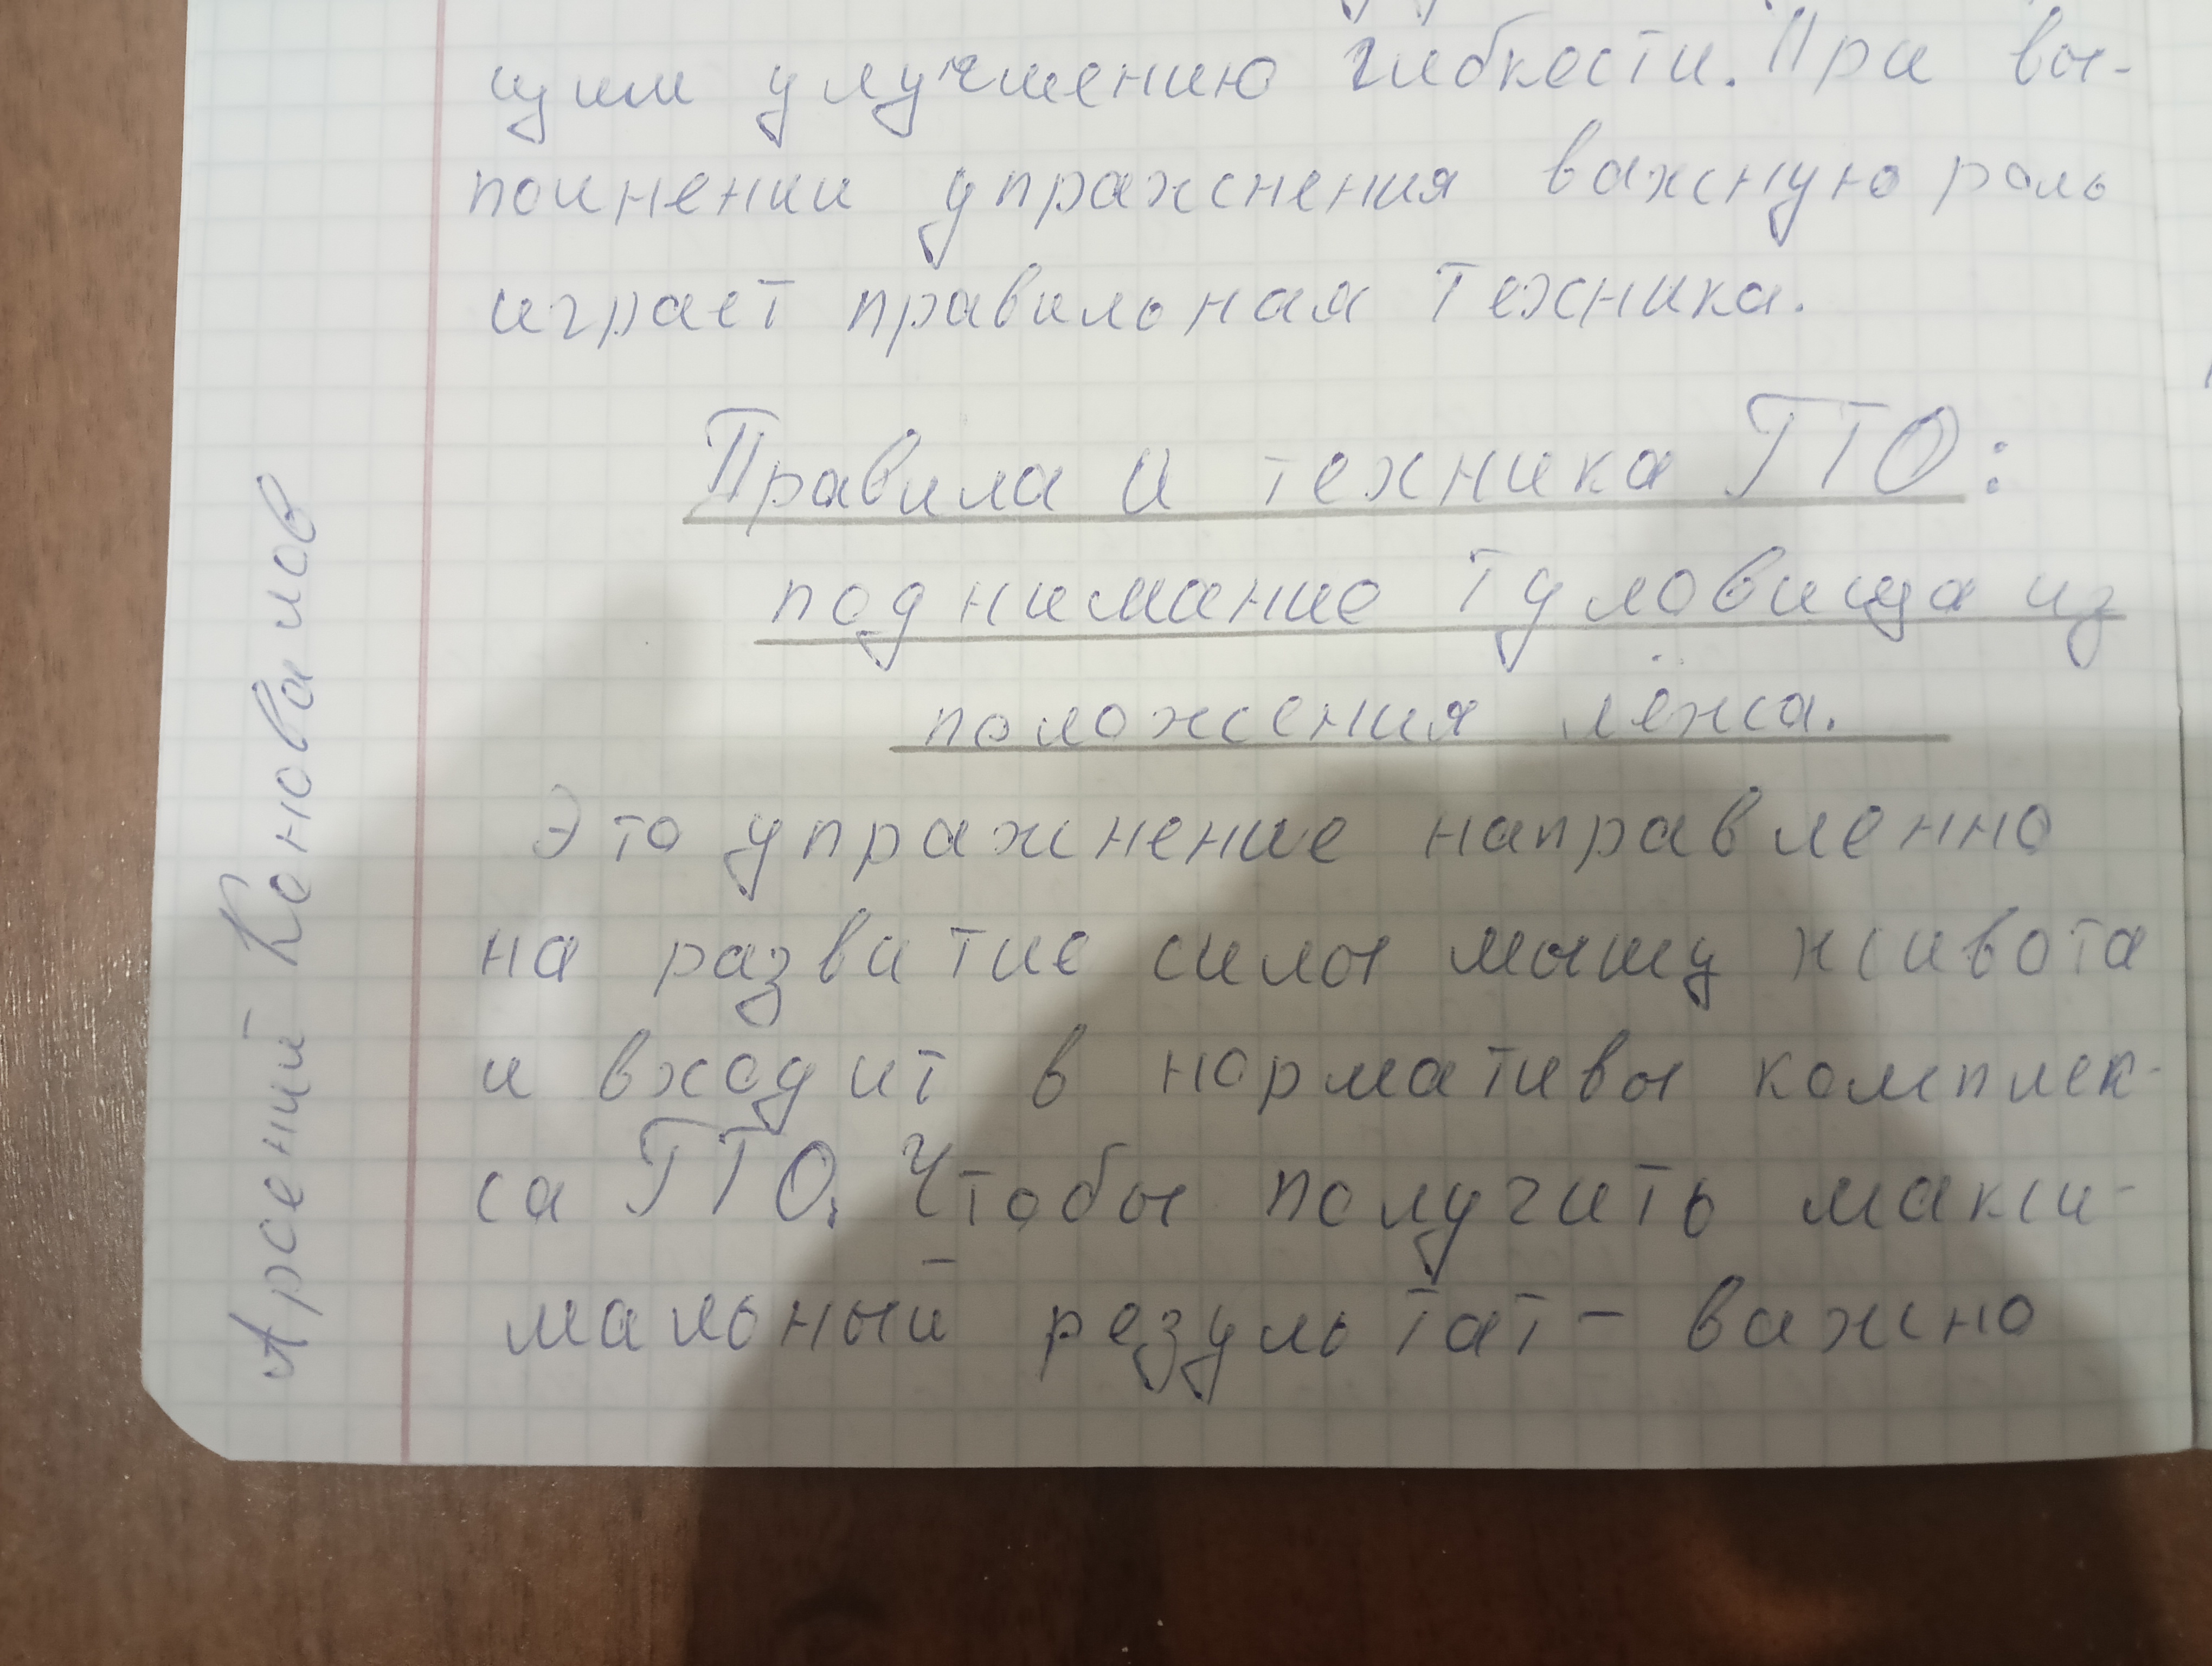 щим улучшению гибкости. При вы-
полнении упражнения важную роль
играет правильная техника.
Правила и техника ГТО:
поднимание туловища из
положения лёжа.
Это упражнение направленно
на развитие силы мышц живота
и входит в нормативы комплек-
са ГТО. Чтобы получить макси-
мальный результат – важно
Арсений Коновалов